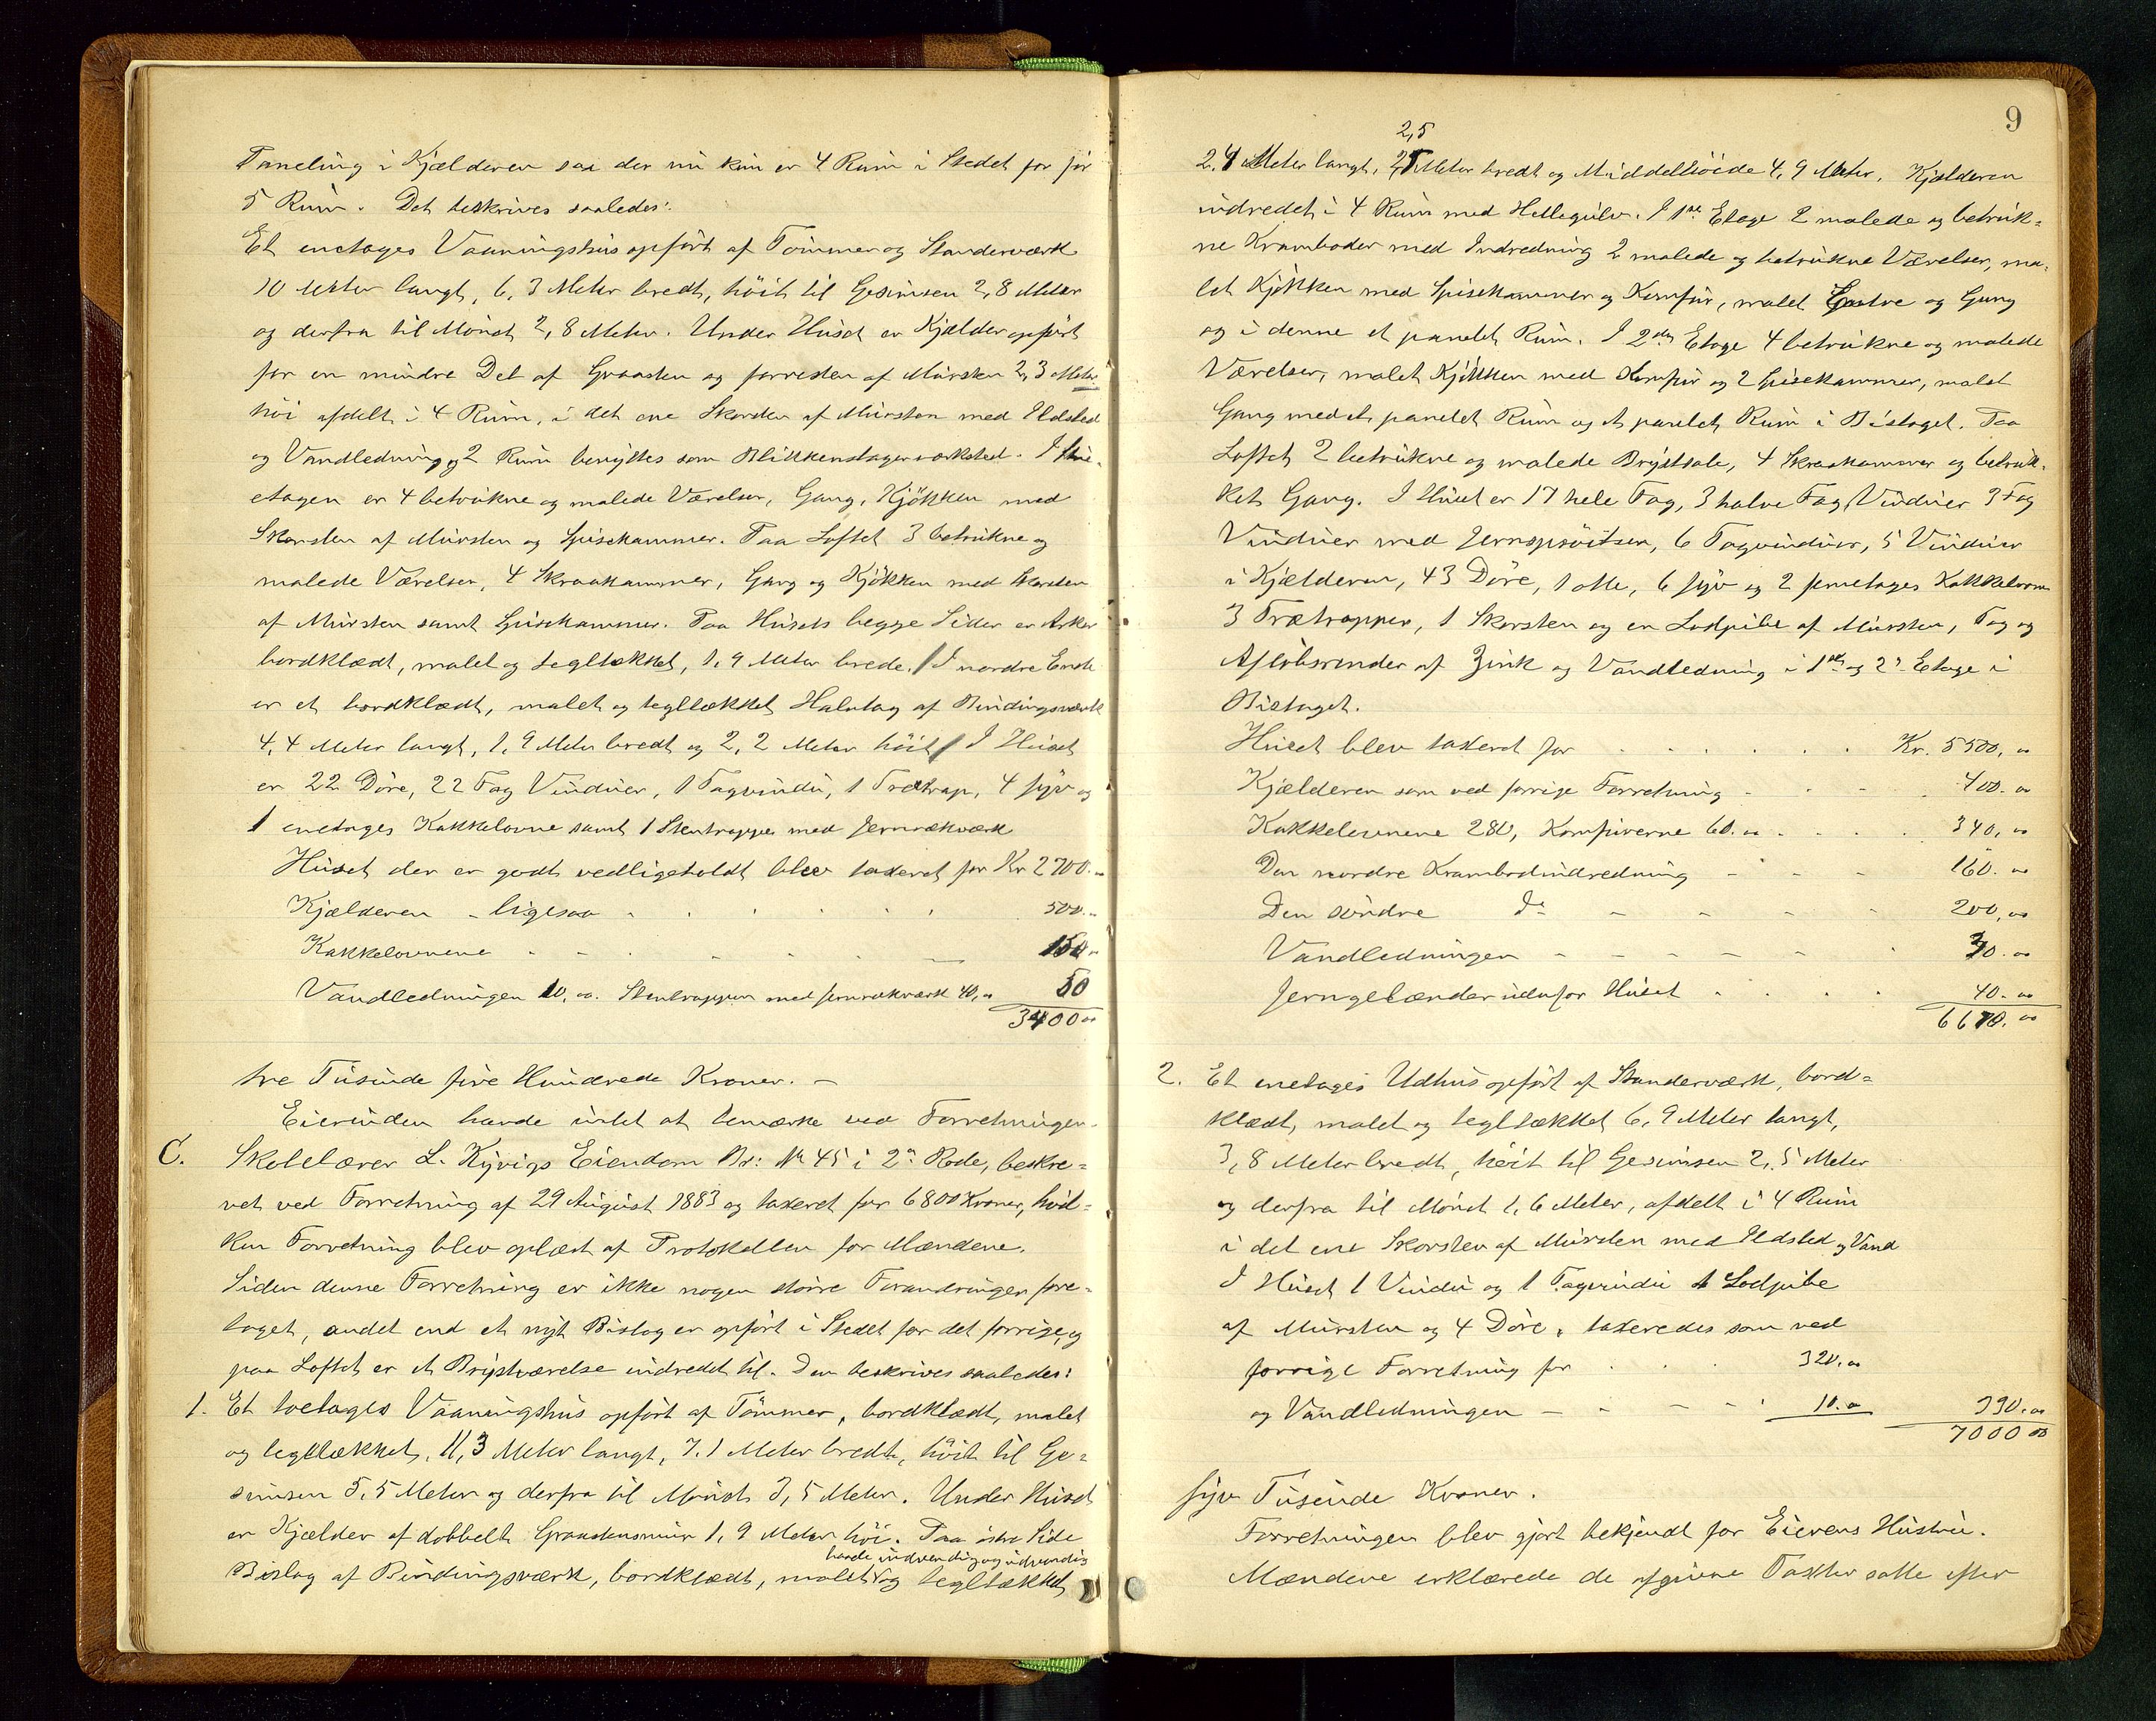 Paneling i Kjælderen saa der nu kun er 4 Rum i Stedet for før
5 Rum. Det beskrives saaledes:
Et enetages Vaaningshus opført af Tømmer og Standerværk
10 Meter langt, 6,3 Meter bredt, høit til Gesimsen 2,8 Meter
og derfra til Mønet 2,8 Meter. Under Huset er Kjælder opført
for en mindre Del af Graasten og forresten af Mursten 2,3 Meter
høi afdelt i 4 Rum, i det ene Skorsten af Mursten med Ildsted
og Vandledning og 2 Rum benyttes som Blikkenslagerværksted. I Stue-
etagen er 4 betrukne og malede Værelser, Gang, Kjøkken med
Skorsten af Mursten og Spisekammer. Paa Loftet 3 betrukne og
malede Værelser, 4 Skraakammer, Gang og Kjøkken med Skorsten
af Mursten samt Spisekammer. Paa Husets begge Sider er Arker
bordklædt, malet og tegltækket, 1,9 Meter brede. I nordre Ende
er et bordklædt, malet og tegltækket Halvtag af Bindingsværk
4,4 Meter langt, 1,9 Meter bredt og 2,2 Meter høit. I Huset
er 22 Døre, 22 Fag Vinduer, 1 Tagvindu, 1 Trætrap, 4 syv og
1 enetages Kakkelovne samt 1 Stentrappe med Jernrækværk
Huset der er godt vedligeholdt blev taxeret for Kr 2700.00
Kjælderen - ligesaa 500.00
Kakkelovnene 150.00
Vandledningen 10,00. Stentrappen med Jernrækværk 40,00 50
3400 00
tre Tusinde fire Hundrede Kroner. -
Eierinden havde intet at bemærke ved Forretningen.
C. Skolelærer L. Kyvigs Eiendom Br: No 45 i 2n Rode, beskre=
vet ved Forretning af 29 August 1883 og taxeret for 6800 Kroner, hvil=
ken Forretning blev oplæst af Protokollen for Mændene.
Siden denne Forretning er ikke nogen større Forandringer fore-
taget, andet end et nyt Bislag er opført i Stedet for det forrige, og
paa Loftet er et Brystværelse indredet til. Den beskrives saaledes:
1. Et toetages Vaaningshus opført af Tømmer, bordklædt, malet
og tegltækket, 11,3 Meter langt, 7,1 Meter bredt, høit til Ge=
simsen 5,5 Meter og derfra til Mønet 3,5 Meter. Under Huset
er Kjælder af dobbelt Graastensmur 1,9 Meter høi. Paa østre Side
baade indvendig og udvendig
Bislag af Bindingsværk, bordklædt, malet og tegltækket
9
2,5
2,4 Meter langt, Meter bredt og Middelhøide 4,9 Meter. Kjælderen
indredet i 4 Rum med Hellegulv. I 1ste Etage 2 malede og betruk=
ne Kramboder med Indredning 2 malede og betrukne Værelser, ma-
let Kjøkken med Spisekammer og Komfur, malet Entre og Gang
og i denne et panelet Rum. I 2den Etage 4 betrukne og malede
Værelser, malet Kjøkken med Komfur og 2 Spisekammer, malet
Gang med et panelet Rum og et panelet Rum i Bislaget. Paa
Loftet 2 betrukne og malede Brystsale, 4 Skraakammer og betruk-
ket Gang. I Huset er 17 hele Fag, 3 halve Fag Vinduer 3 Fag
Vinduer med Jernsprøitser, 6 Tagvinduer, 5 Vinduer
i Kjælderen, 43 Døre, 1 otte, 6 syv og 2 femetages Kakkelovne
3 Trætrapper, 1 Skorsten og en Lodpibe af Mursten, Tag og
Afløbsrender af Zink og Vandledning i 1ste og 2n Etage i
Bislaget.
Huset blev taxeret for Kr. 5500,00
Kjælderen som ved forrige Forretning 400.00
Kakkelovnene 280, Komfurerne 60.00 340,00
Den nordre Krambodindredning 160.00
Den søndre Do 200,00
Vandledningen 30.00
Jerngelænder udenfor Huset 40.00
6670.00
2. Et enetages Udhus opført af Standerværk, bord=
klædt, malet og tegltækket 6,9 Meter langt,
3,8 Meter bredt, høit til Gesimsen 2,5 Meter
og derfra til Mønet 1,6 Meter, afdelt i 4 Rum
i det ene Skorsten af Mursten med Ildsted og Vand
I Huset 1 Vindu og 1 Tagvindu 1 Lodpibe
af Mursten og 4 Døre, taxeredes som ved
forrige Forretning for 320,00
og Vandledningen 10.00 330.00
7000 00
syv Tusinde Kroner.
Forretningen blev gjort bekjendt for Eierens Hustru.
Mændene erklærede de afgivne Taxter satte efter